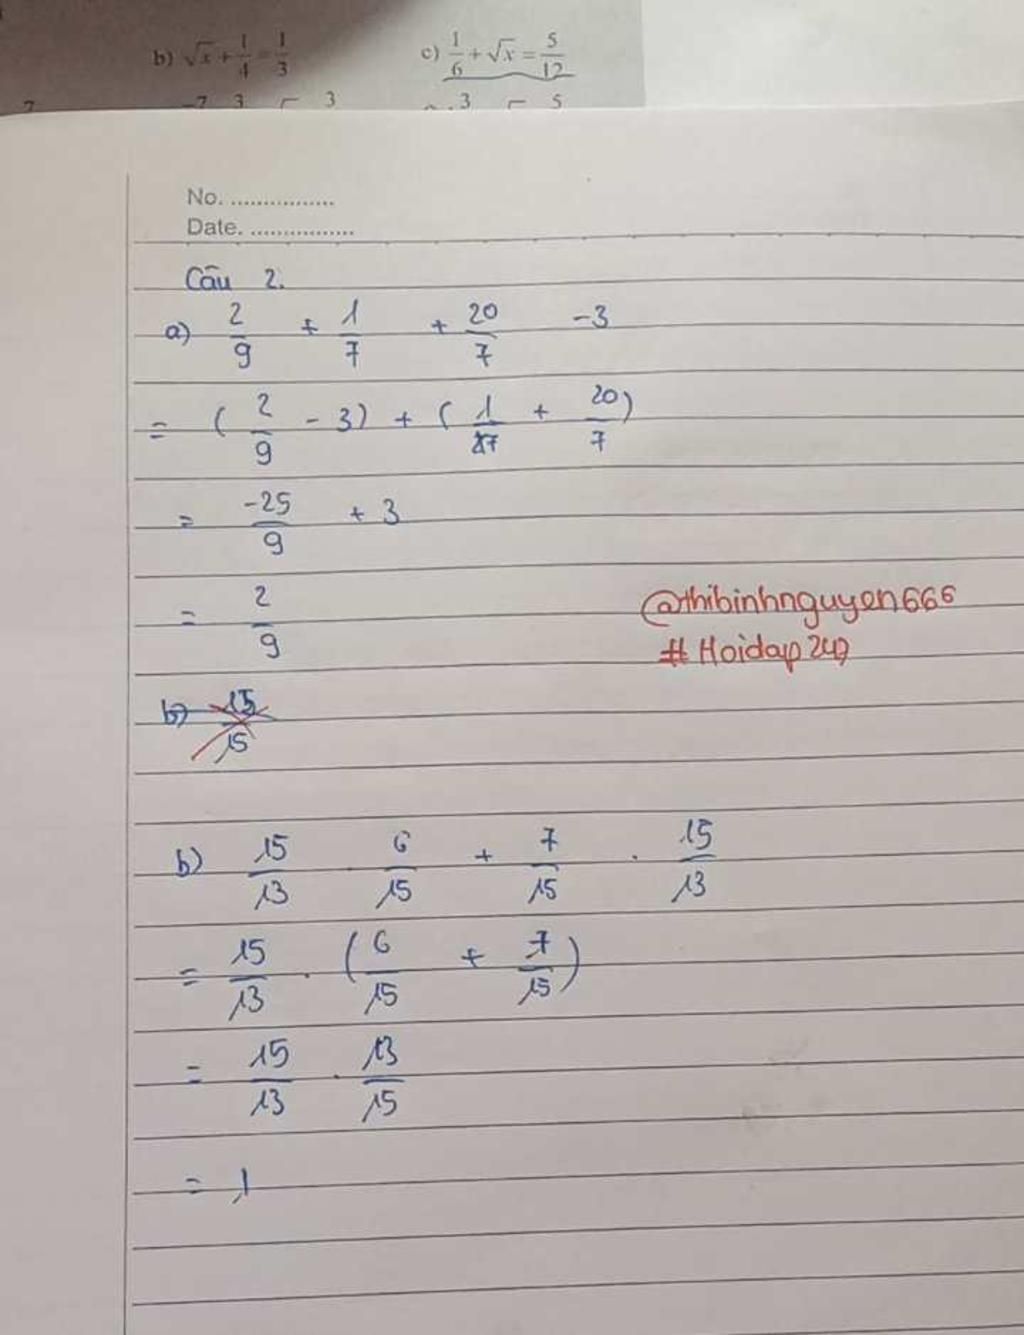 b) √x + 1/4 = 1/3 c) 1/6 + √x = 5/12
No. ................
Date. ................
Câu 2.
a) 2/9 + 1/7 + 20/7 -3
= (2/9 - 3) + (1/7 + 20/7)
= -25/9 + 3
= 2/9
@thibinhnguyen666
# Hoidap247
b) 15/15
b) 15/13 . 6/15 + 7/15 . 15/13
= 15/13 . (6/15 + 7/15)
= 15/13 . 13/15
= 1